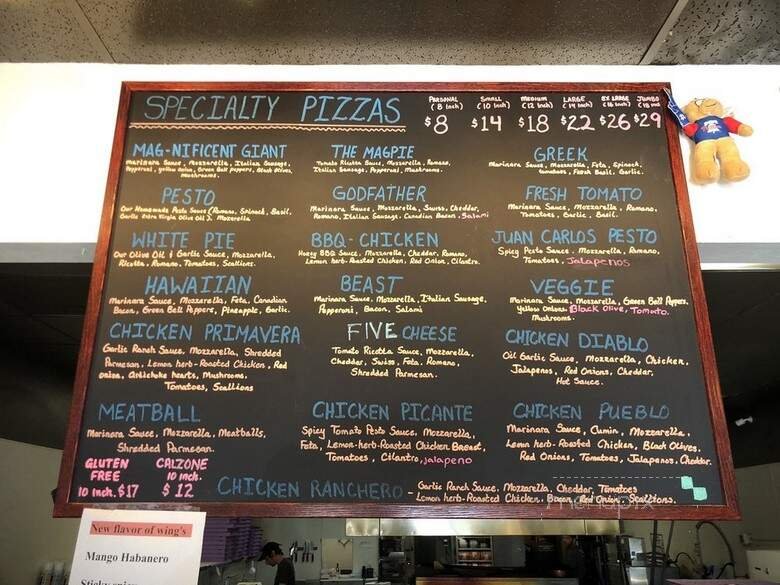 SPECIALTY PIZZAS
PERSONAL SMALL MEDIUM LARGE EX LARGE JUMBO
(8 Inch) (10 Inch) (12 Inch) (14 Inch) (16 Inch) (18 Inch)
$8 $14 $18 $22 $26 $29
MAG-NIFICENT GIANT
Marinara Sauce, Mozzarella, Italian Sausage,
Pepperoni, Yellow Onion, Green Bell peppers, Black Olives,
Mushrooms.
THE MAGPIE
Tomato Ricotta Sauce, Mozzarella, Romano,
Italian Sausage, Pepperoni, Mushrooms.
GREEK
Marinara Sauce, Mozzarella, Feta, Spinach,
tomatoes, Fresh Basil, Garlic.
PESTO
Our Homemade Pesto Sauce (Romano, Spinach, Basil,
Garlic Extra Virgin Olive Oil), Mozzarella
GODFATHER
Marinara Sauce, Mozzarella, Swiss, Cheddar,
Romano, Italian Sausage, Canadian Bacon, Salami
FRESH TOMATO
Marinara Sauce, Mozzarella, Romano,
Tomatoes, Garlic, Basil.
WHITE PIE
Our Olive Oil & Garlic Sauce, Mozzarella,
Ricotta, Romano, Tomatoes, Scallions.
BBQ-CHICKEN
Honey BBQ Sauce, Mozzarella, Cheddar, Romano,
Lemon herb-Roasted Chicken, Red Onion, Cilantro.
JUAN CARLOS PESTO
Spicy Pesto Sauce, Mozzarella, Romano,
Tomatoes, Jalapenos
HAWAIIAN
Marinara Sauce, Mozzarella, Feta, Canadian
Bacon, Green Bell Peppers, Pineapple, Garlic.
BEAST
Marinara Sauce, Mozzarella, Italian Sausage,
Pepperoni, Bacon, Salami
VEGGIE
Marinara Sauce, Mozzarella, Green Bell Peppers,
Yellow Onions, Black Olive, Tomato.
Mushrooms.
CHICKEN PRIMAVERA
Garlic Ranch Sauce, Mozzarella, Shredded
Parmesan, Lemon herb-Roasted Chicken, Red
onion, Artichoke hearts, Mushrooms,
Tomatoes, Scallions
FIVE CHEESE
Tomato Ricotta Sauce, Mozzarella,
Cheddar, Swiss, Feta, Romano,
Shredded Parmesan.
CHICKEN DIABLO
Oil Garlic Sauce, Mozzarella, Chicken,
Jalapenos, Red Onions, Cheddar,
Hot Sauce.
MEATBALL
Marinara Sauce, Mozzarella, Meatballs,
Shredded Parmesan.
CHICKEN PICANTE
Spicy Tomato Pesto Sauce, Mozzarella,
Feta, Lemon-herb-Roasted Chicken Breast,
Tomatoes, Cilantro, jalapeno
CHICKEN PUEBLO
Marinara Sauce, Cumin, Mozzarella,
Lemon herb-Roasted Chicken, Black Olives,
Red Onions, Tomatoes, Jalapenos, Cheddar.
GLUTEN
FREE
10 Inch. $17
CALZONE
10 Inch.
$12
CHICKEN RANCHERO - Garlic Ranch Sauce, Mozzarella, Cheddar, Tomatoes
- Lemon herb-Roasted Chicken, Bacon, Red Onion, Scallions.
menupix
New flavor of wing's
Mango Habanero